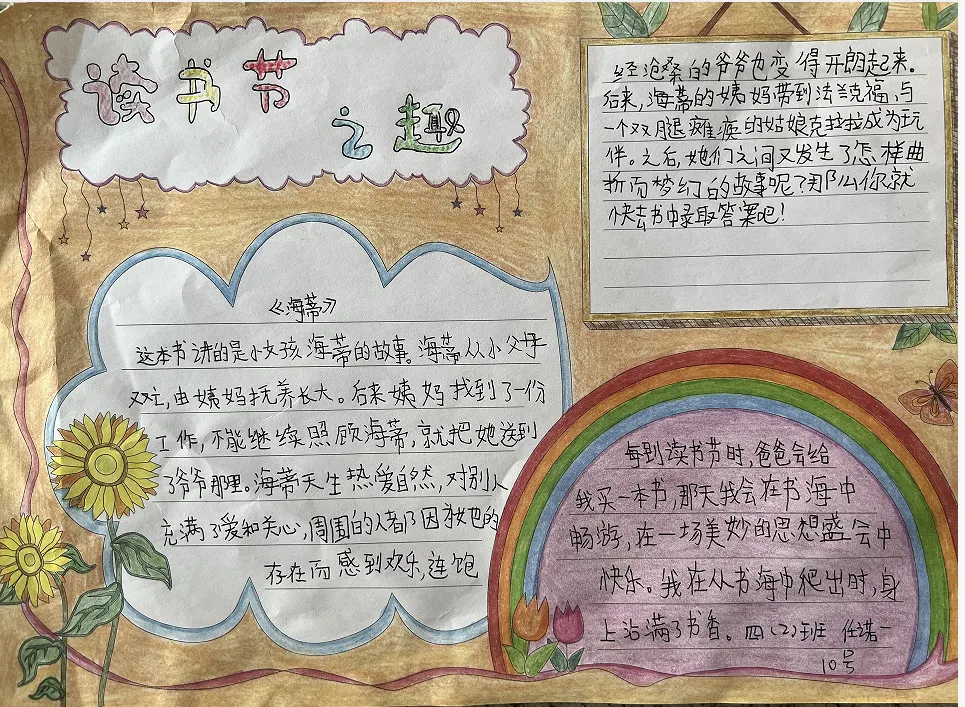 读书节
之趣
《海蒂》
这本书讲的是小女孩海蒂的故事。海蒂从小父母
双亡,由姨妈抚养长大。后来姨妈找到了一份
工作,不能继续照顾海蒂,就把她送到
了爷爷那里。海蒂天生热爱自然,对别人
充满了爱和关心,周围的人都了因为她的
存在而感到欢乐,连饱
经沧桑的爷爷也变得开朗起来。
后来,海蒂的姨妈带到法兰克福,与
一个双腿瘫痪的姑娘克拉拉成为玩
伴。之后,她们之间又发生了怎样曲
折而梦幻的故事呢?那么你就
快去书中录取答案吧!
每到读书节时,爸爸会给
我买一本书,那天我会在书海中
畅游,在一场美妙的思想盛会中
快乐。我在从书海中爬出时,身
上沾满了书香。四(2)班 任诺一
10号